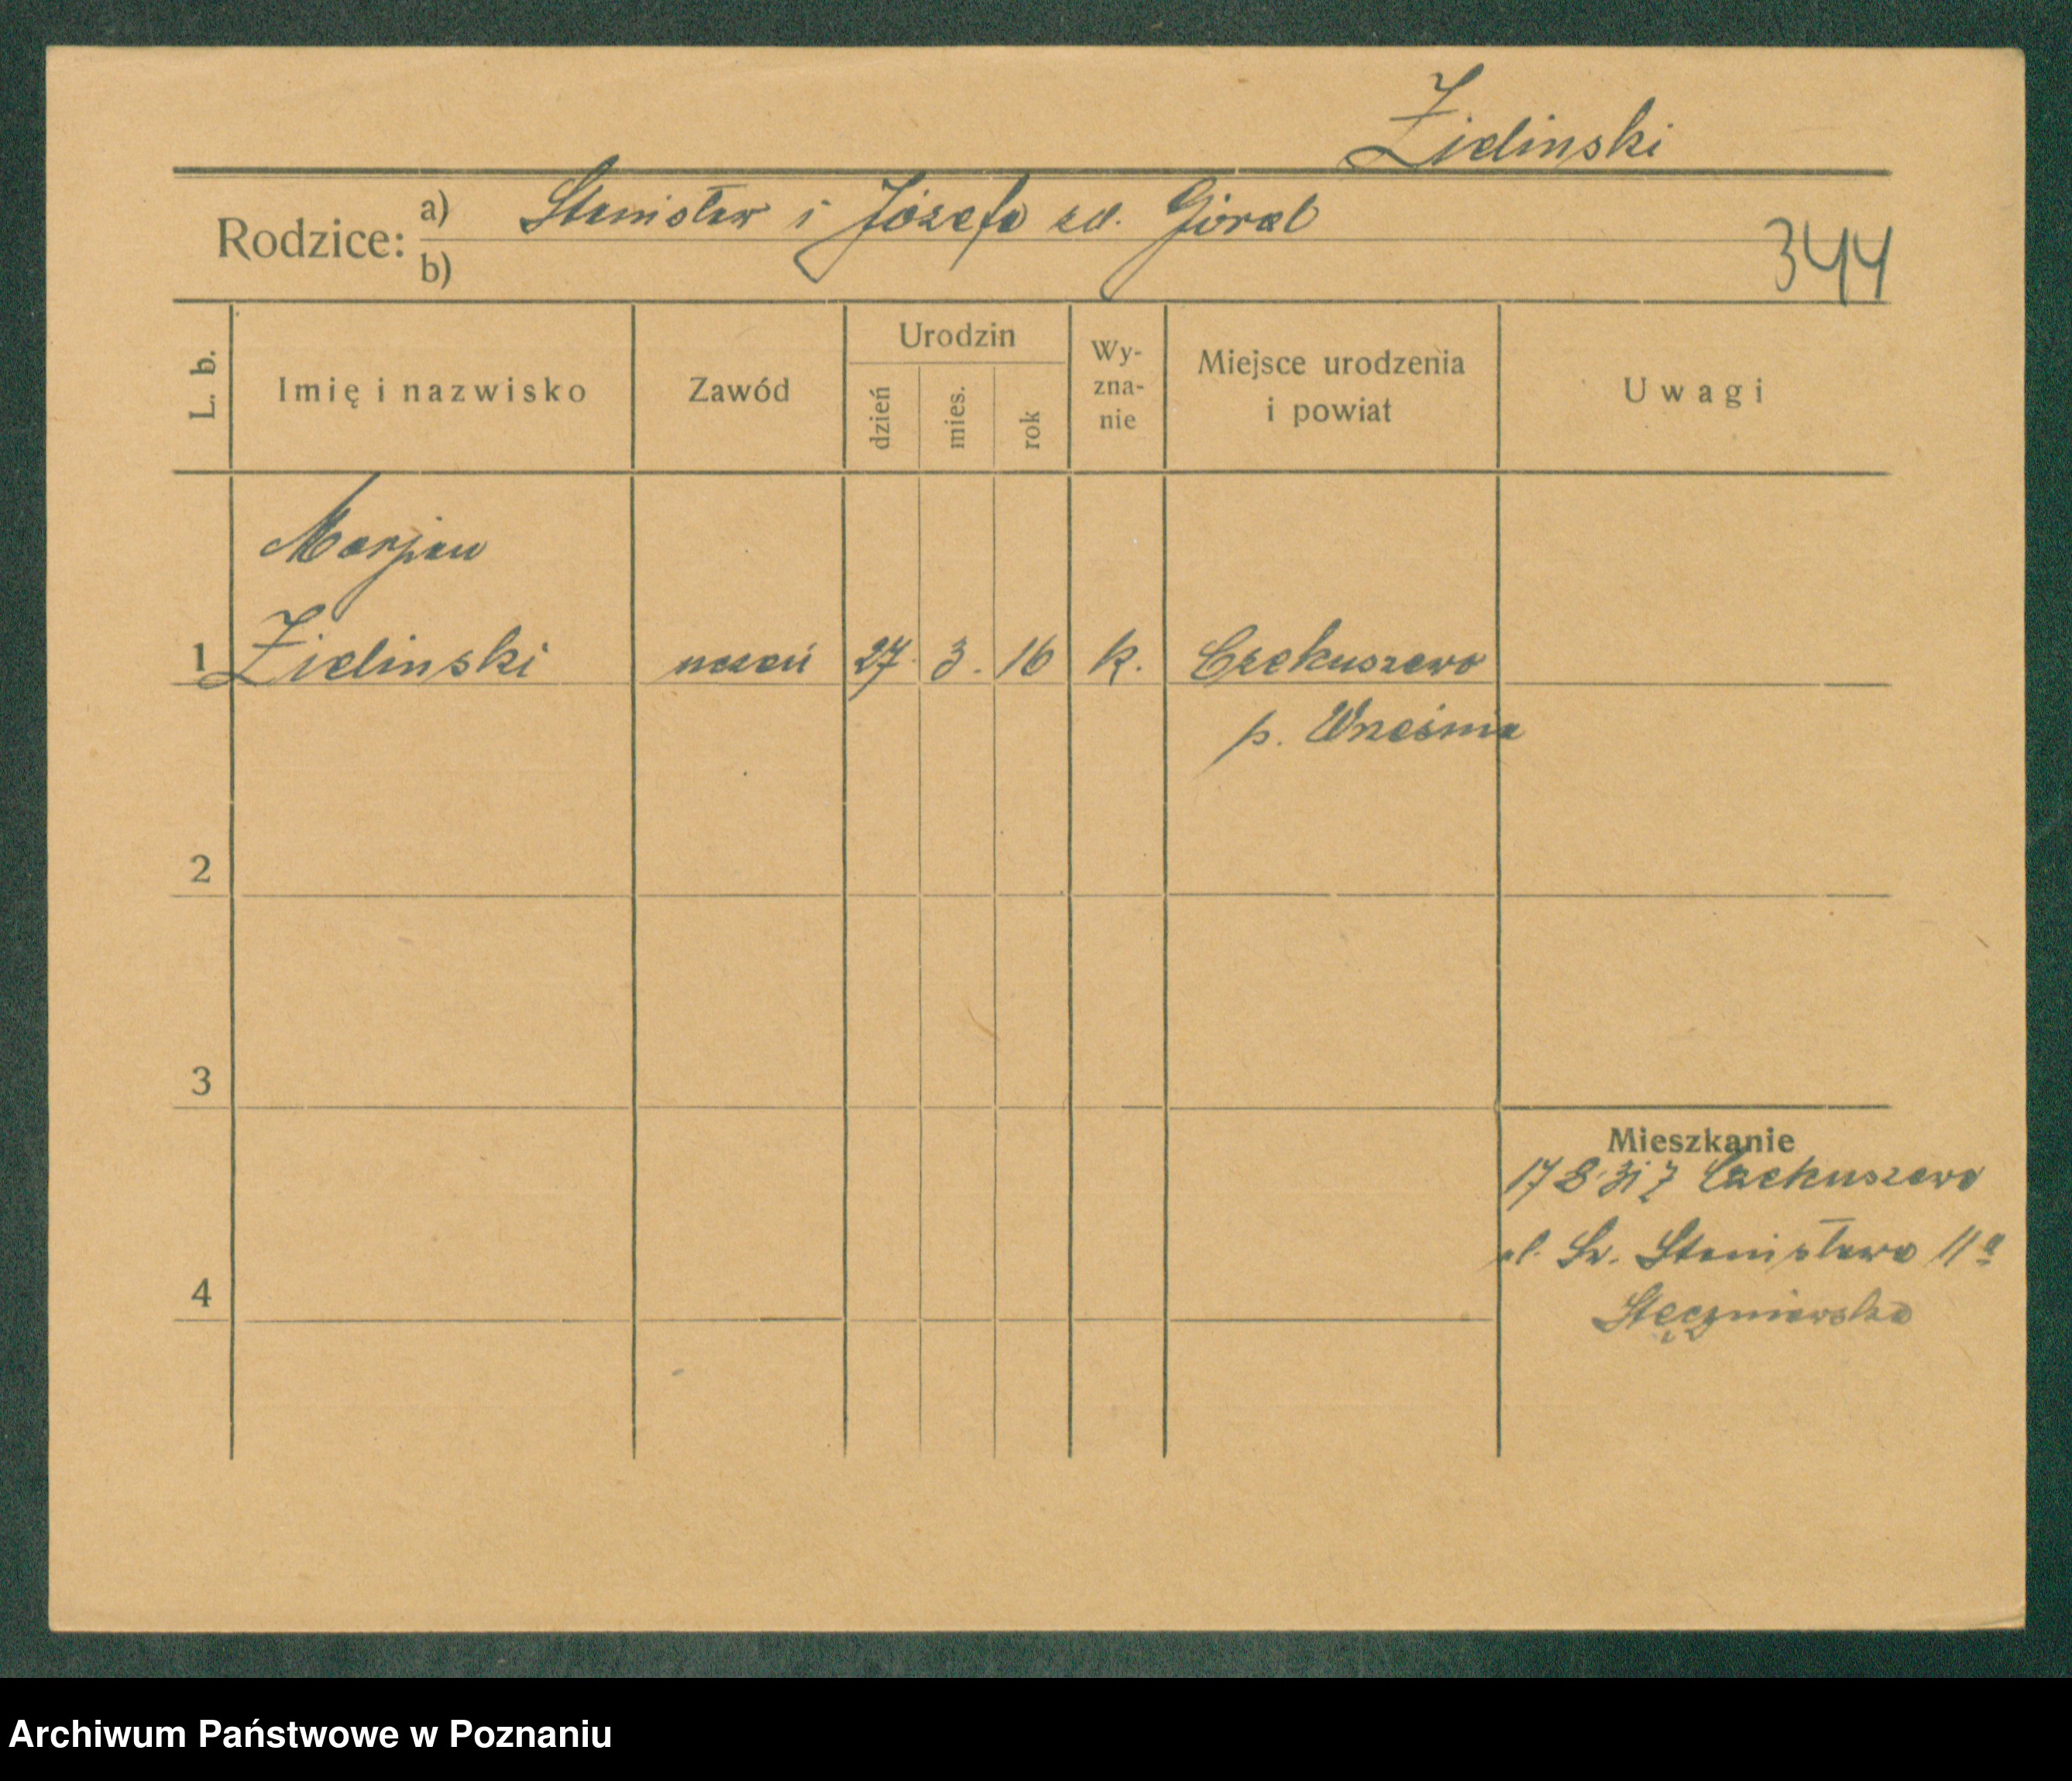 Zielinski
Rodzice: a) Stanisław i Józefa zd. Góral
b)
344
L. b. Imię i nazwisko Zawód Urodzin dzień mies. rok Wy-zna-nie Miejsce urodzenia i powiat Uwagi
Marjan
1 Zielinski uczeń 27. 3. 16 k. Czekuszewo
p. Września
2
3
Mieszkanie
17 8 31 z Czekuszewo
ul. Św. Stanisława 11a
4
Archiwum Państwowe w Poznaniu